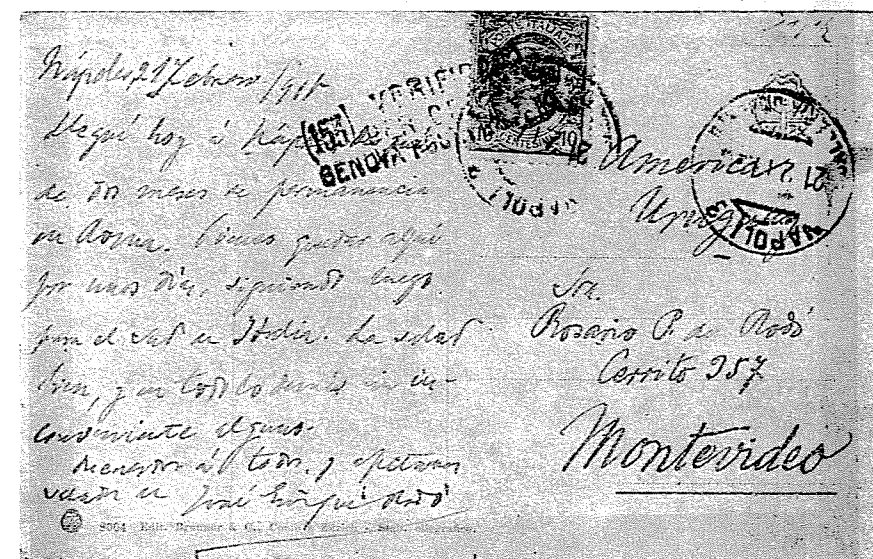 Nápoles, 21 Febrero / 917
Llegué hoy á Nápoles
de dos meses de permanencia
en Roma. Pienso quedar aquí
por unos días, siguiendo luego
para el sud de Italia. La salud
bien, y en todo lo demás sin in-
conveniente alguno.
Recuerdos á todos, y afectuosos
de José Enrique Rodó
VERIFIC
(153)
GENOVA
NAPOLI
NAPOLI
21
America
Uruguay
Sra.
Rosario P. de Rodó
Cerrito 357
Montevideo
9064